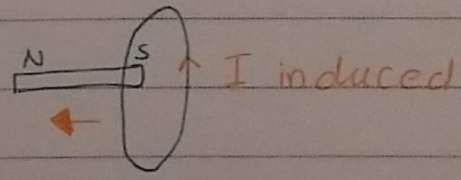 N S
I induced